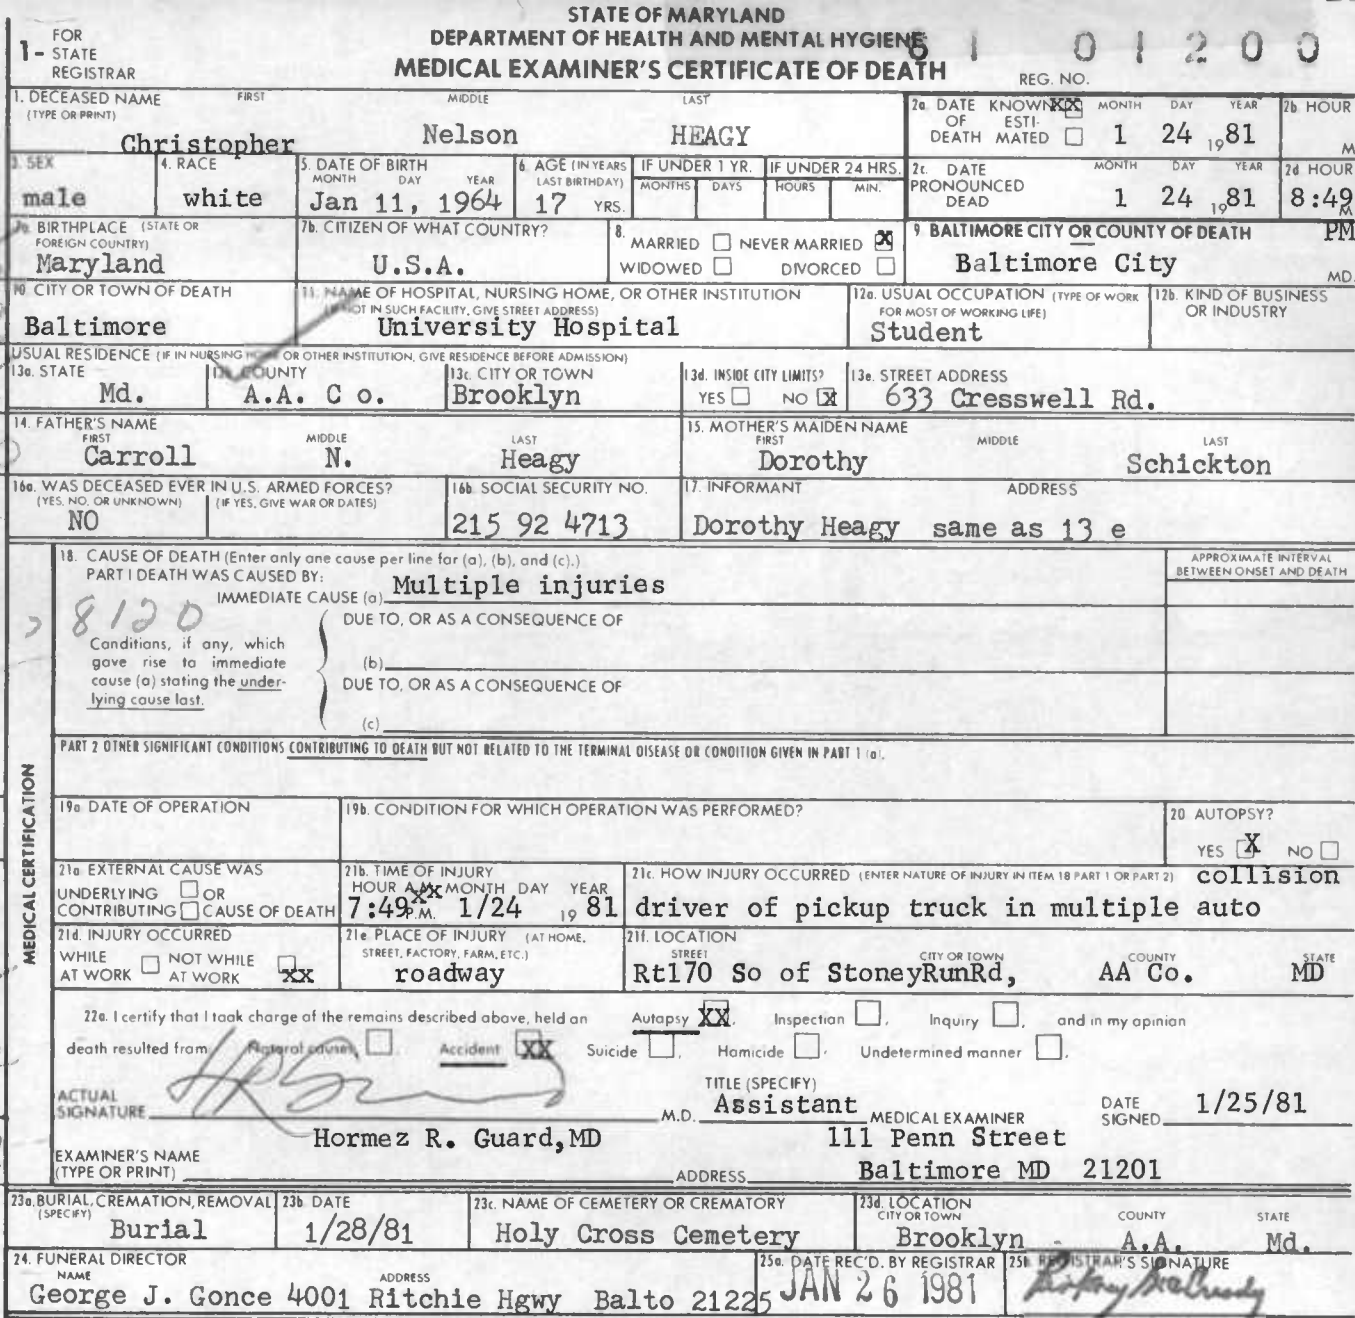 STATE OF MARYLAND
DEPARTMENT OF HEALTH AND MENTAL HYGIENE
MEDICAL EXAMINER'S CERTIFICATE OF DEATH
1- FOR STATE REGISTRAR
REG. NO. 81 01200
1. DECEASED NAME (TYPE OR PRINT) FIRST MIDDLE LAST
Christopher Nelson HEAGY
2a. DATE OF DEATH KNOWN XX ESTIMATED MONTH DAY YEAR 1 24 1981
2b HOUR M
3. SEX male
4. RACE white
5. DATE OF BIRTH MONTH DAY YEAR Jan 11, 1964
6. AGE (IN YEARS LAST BIRTHDAY) 17 YRS.
IF UNDER 1 YR. MONTHS DAYS
IF UNDER 24 HRS. HOURS MIN.
2c. DATE PRONOUNCED DEAD MONTH DAY YEAR 1 24 1981
2d HOUR 8:49 M PM
7a. BIRTHPLACE (STATE OR FOREIGN COUNTRY) Maryland
7b. CITIZEN OF WHAT COUNTRY? U.S.A.
8. MARRIED NEVER MARRIED X
WIDOWED DIVORCED
9. BALTIMORE CITY OR COUNTY OF DEATH Baltimore City MD.
10. CITY OR TOWN OF DEATH Baltimore
11. NAME OF HOSPITAL, NURSING HOME, OR OTHER INSTITUTION
(IF NOT IN SUCH FACILITY, GIVE STREET ADDRESS) University Hospital
12a. USUAL OCCUPATION (TYPE OF WORK FOR MOST OF WORKING LIFE) Student
12b. KIND OF BUSINESS OR INDUSTRY
USUAL RESIDENCE (IF IN NURSING HOME OR OTHER INSTITUTION, GIVE RESIDENCE BEFORE ADMISSION)
13a. STATE Md.
13b. COUNTY A.A. C o.
13c. CITY OR TOWN Brooklyn
13d. INSIDE CITY LIMITS? YES NO X
13e. STREET ADDRESS 633 Cresswell Rd.
14. FATHER'S NAME FIRST MIDDLE LAST
Carroll N. Heagy
15. MOTHER'S MAIDEN NAME FIRST MIDDLE LAST
Dorothy Schickton
16a. WAS DECEASED EVER IN U.S. ARMED FORCES?
(YES, NO, OR UNKNOWN) (IF YES, GIVE WAR OR DATES) NO
16b. SOCIAL SECURITY NO. 215 92 4713
17. INFORMANT ADDRESS
Dorothy Heagy same as 13 e
MEDICAL CERTIFICATION
18. CAUSE OF DEATH (Enter only one cause per line for (a), (b), and (c).)
PART I DEATH WAS CAUSED BY:
IMMEDIATE CAUSE (a) Multiple injuries
APPROXIMATE INTERVAL BETWEEN ONSET AND DEATH
8120
DUE TO, OR AS A CONSEQUENCE OF
Conditions, if any, which gave rise to immediate cause (a) stating the underlying cause last.
(b)
DUE TO, OR AS A CONSEQUENCE OF
(c)
PART 2 OTHER SIGNIFICANT CONDITIONS CONTRIBUTING TO DEATH BUT NOT RELATED TO THE TERMINAL DISEASE OR CONDITION GIVEN IN PART 1 (a).
19a DATE OF OPERATION
19b. CONDITION FOR WHICH OPERATION WAS PERFORMED?
20. AUTOPSY? YES X NO
21a EXTERNAL CAUSE WAS
UNDERLYING OR
CONTRIBUTING CAUSE OF DEATH
21b. TIME OF INJURY
HOUR A.M. MONTH DAY YEAR
7:49 P.M. 1/24 1981
21c. HOW INJURY OCCURRED (ENTER NATURE OF INJURY IN ITEM 18 PART 1 OR PART 2) collision
driver of pickup truck in multiple auto
21d. INJURY OCCURRED
WHILE AT WORK NOT WHILE AT WORK XX
21e PLACE OF INJURY (AT HOME, STREET, FACTORY, FARM, ETC.)
roadway
21f. LOCATION STREET CITY OR TOWN COUNTY STATE
Rt170 So of StoneyRunRd, AA Co. MD
22a. I certify that I took charge of the remains described above, held an Autopsy XX, Inspection, Inquiry, and in my opinion
death resulted from Natural causes, Accident XX Suicide, Homicide, Undetermined manner.
ACTUAL SIGNATURE M.D.
TITLE (SPECIFY) Assistant MEDICAL EXAMINER
DATE SIGNED 1/25/81
EXAMINER'S NAME (TYPE OR PRINT) Hormez R. Guard,MD
ADDRESS 111 Penn Street
Baltimore MD 21201
23a. BURIAL, CREMATION, REMOVAL (SPECIFY) Burial
23b. DATE 1/28/81
23c. NAME OF CEMETERY OR CREMATORY Holy Cross Cemetery
23d. LOCATION CITY OR TOWN COUNTY STATE
Brooklyn A.A. Md.
24. FUNERAL DIRECTOR NAME ADDRESS
George J. Gonce 4001 Ritchie Hgwy Balto 21225
25a. DATE REC'D. BY REGISTRAR JAN 26 1981
25b. REGISTRAR'S SIGNATURE